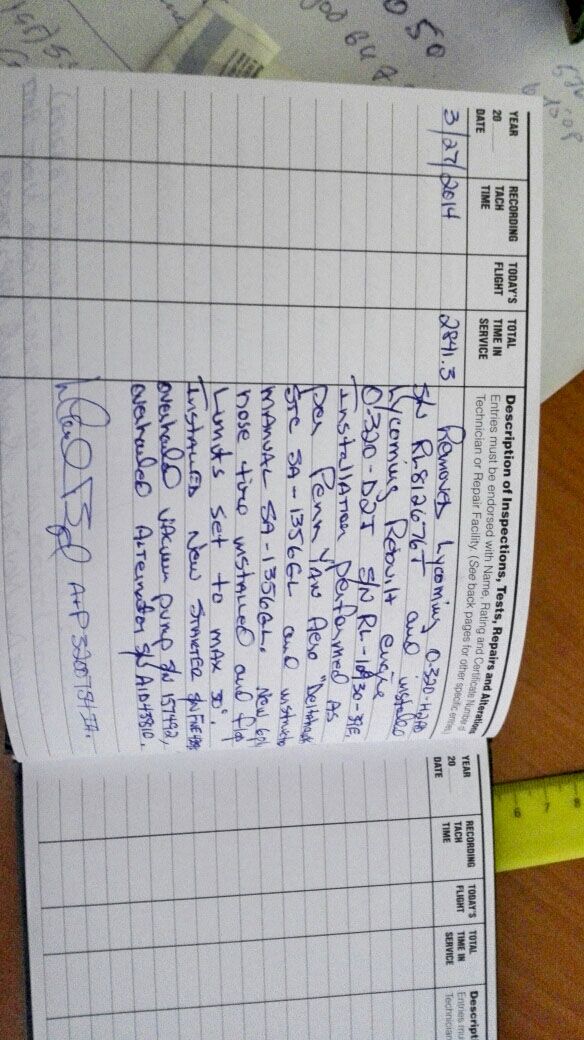 YEAR
20
DATE
RECORDING
TACH
TIME
TODAY'S
FLIGHT
TOTAL
TIME IN
SERVICE
Description of Inspections, Tests, Repairs and Alterations
Entries must be endorsed with Name, Rating and Certificate Number of
Technician or Repair Facility. (See back pages for other specific entries
3/27/2014 2841.3 Removed Lycoming O-320-H2AD
S/N RL812676T and installed
Lycoming Rebuilt engine
O-320-D2J S/N
Installation performed AS
per Penn YAN Aero
STC SA-1356GL and
MANUAL SA-1356GL. New 6ply
nose tire installed and flap
Limits set to MAX 30°.
Installed New STARTER S/N
overhaled VACuum pump S/N 157492,
overhauled Alternator S/N
A+P 3200754 IA.
YEAR
20
DATE
RECORDING
TACH
TIME
TODAY'S
FLIGHT
TOTAL
TIME IN
SERVICE
Descript
Entries mu
Technician
050
6
7
8